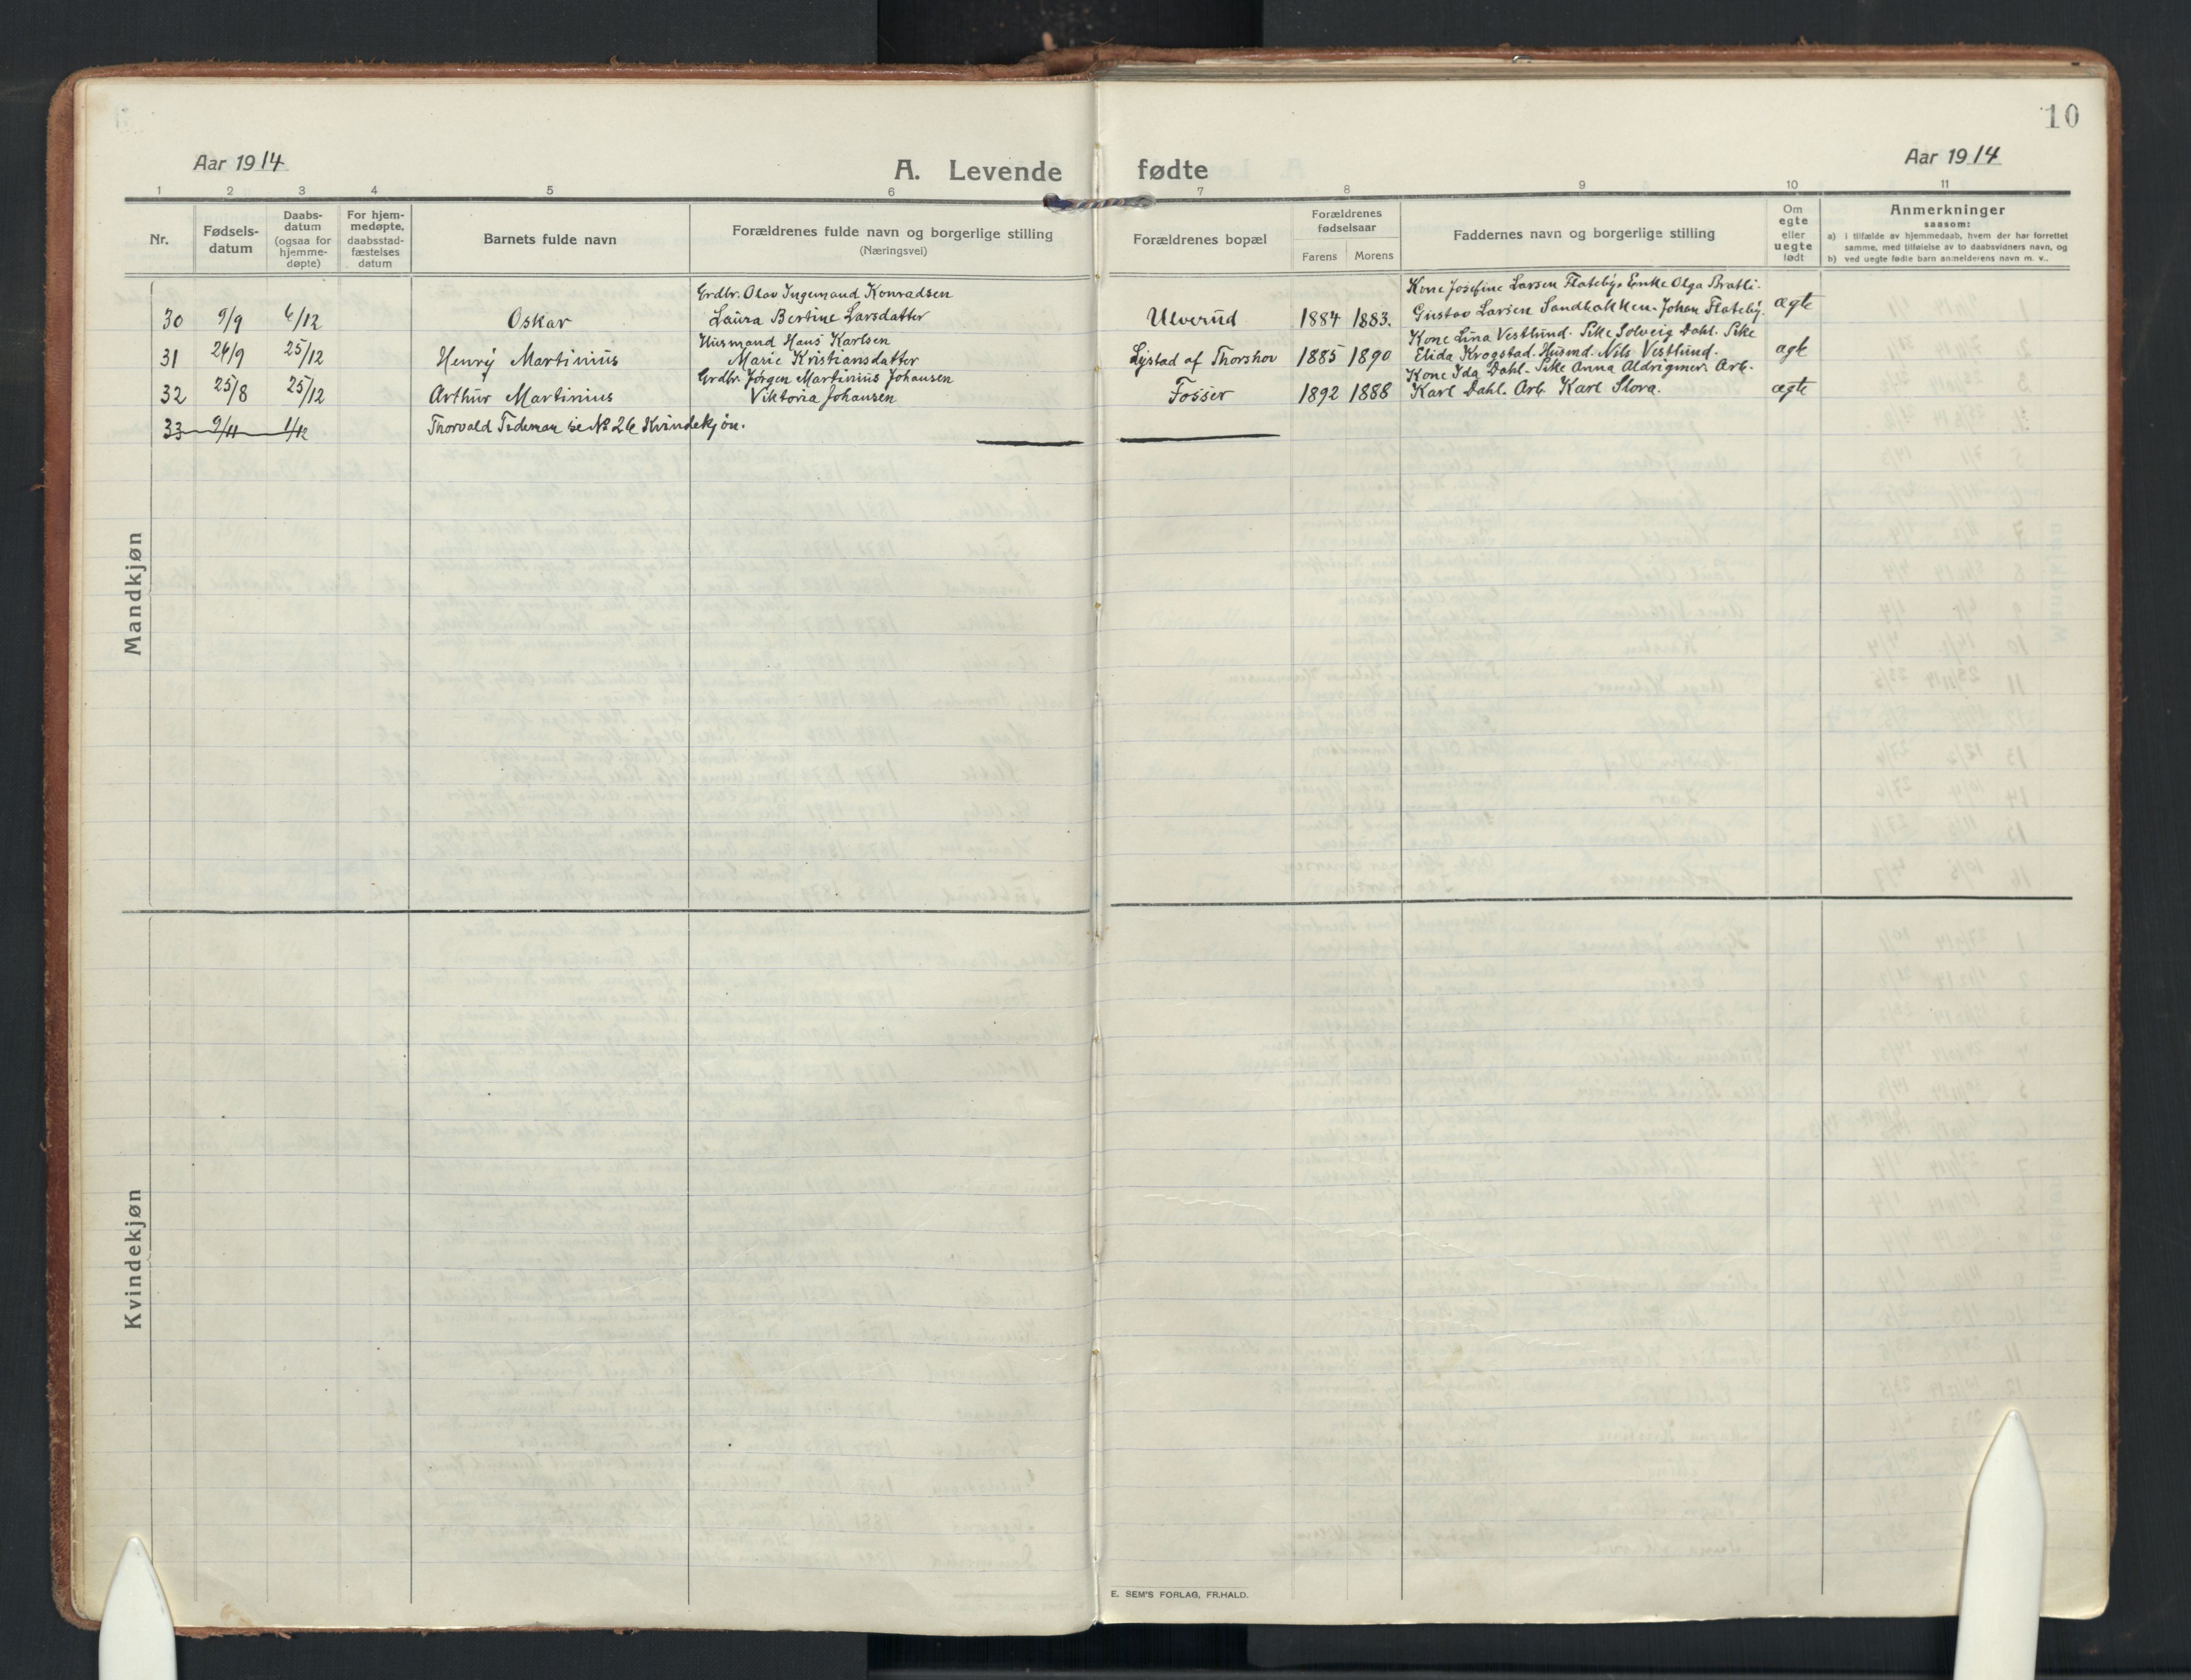 10
Aar 1914
A. Levende fødte
Aar 1914
1 2 3 4 5 6 7 8 9 10 11
Nr.
Fødsels-
datum
Daabs-
datum
(ogsaa for
hjemme-
døpte)
For hjem-
medøpte,
daabsstad-
fæstelses
datum
Barnets fulde navn
Forældrenes fulde navn og borgerlige stilling
(Næringsvei)
Forældrenes bopæl
Forældrenes
fødselsaar
Farens
Morens
Faddernes navn og borgerlige stilling
Om
egte
eller
uegte
født
Anmerkninger
saasom:
a) i tilfælde av hjemmedaab, hvem der har forrettet
samme, med tilføielse av to daabsvidners navn, og
b) ved uegte fødte barn anmelderens navn m. v..
Mandkjøn
Grdbr. Olav Ingemand Konradsen
Kone Josefine Larsen Flateby. Enke Olga Bratli.
30 9/9 6/12 Oskar Laura Bertine Larsdatter Ulverud 1884 1883. Gustav Larsen Sandbakken. Johan Flateby. ægte
Husmand Hans Karlsen
Kone Lina Vestlund. Pike Solveig Dahl. Pike
31 26/9 25/12 Henry Martinius Marie Kristiansdatter Lystad af Thorshov 1885 1890 Elida Krogstad. Husmd. Nils Vestlund. ægte
Grdbr. Jörgen Martinius Johansen
Kone Ida Dahl. Pike Anna Aldrigmer. Arb.
32 25/8 25/12 Arthur Martinius Viktoria Johansen Fosser 1892 1888 Karl Dahl. Arb. Karl Slora. ægte
33 9/11 1/12 Thorvald Tideman se No 26 Kvindekjön.
Kvindekjøn
E. SEM'S FORLAG, FR.HALD.